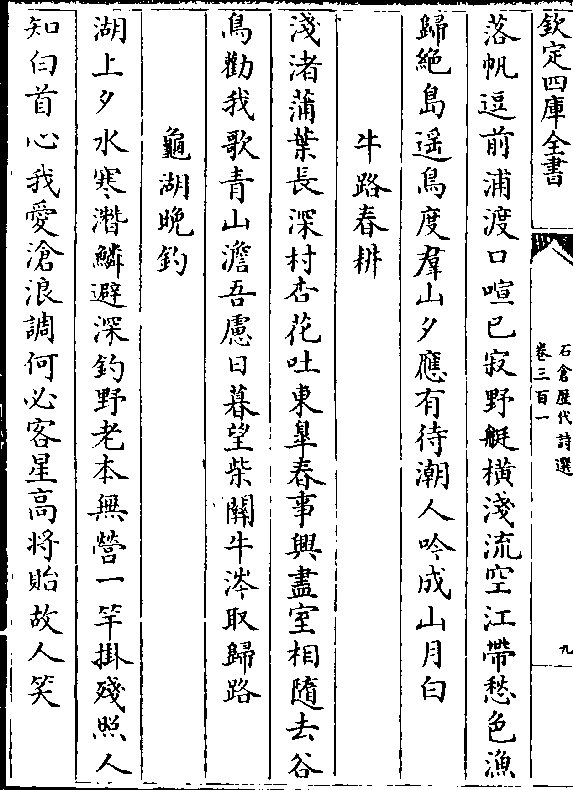 欽定四庫全書
石倉歴代詩選
卷三百一
九
落帆逗前浦渡口喧已寂野艇横淺流空江帶愁色漁
歸絶島遥鳥度羣山夕應有待潮人吟成山月白
牛路春耕
淺渚蒲葉長深村杏花吐東臯春事興盡室相随去谷
鳥勸我歌青山澹吾慮日暮望柴關牛涔取歸路
龜湖晩釣
湖上夕水寒潛鱗避深釣野老本無營一竿掛殘照人
知白首心我愛滄浪調何必客星高将貽故人笑